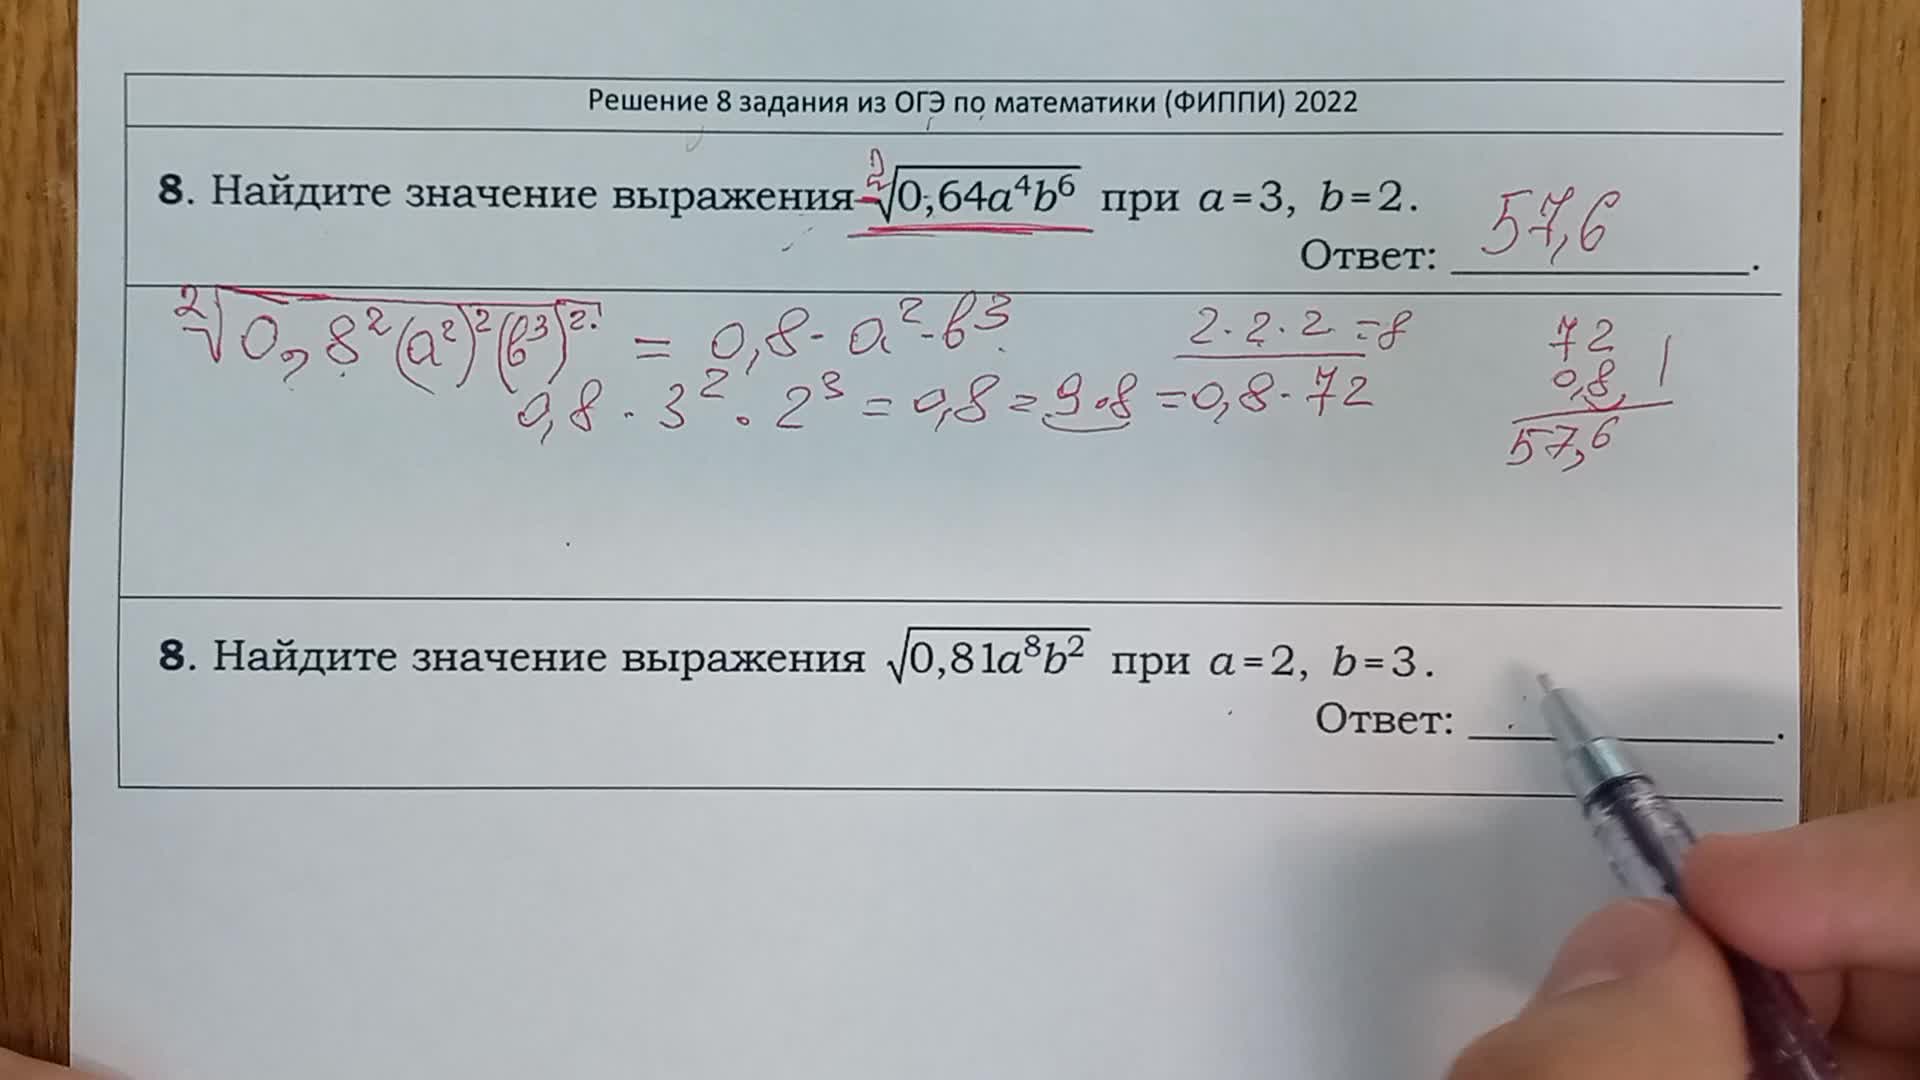 Решение 8 задания из ОГЭ по математики (ФИППИ) 2022
8. Найдите значение выражения ²√0,64a⁴b⁶ при a=3, b=2.
Ответ: 57,6.
²√0,8²(a²)²(b³)² = 0,8·a²·b³
2·2·2=8
0,8·3²·2³=0,8=9·8=0,8·72
72
0,8
57,6
8. Найдите значение выражения √0,81a⁸b² при a=2, b=3.
Ответ: ____________.